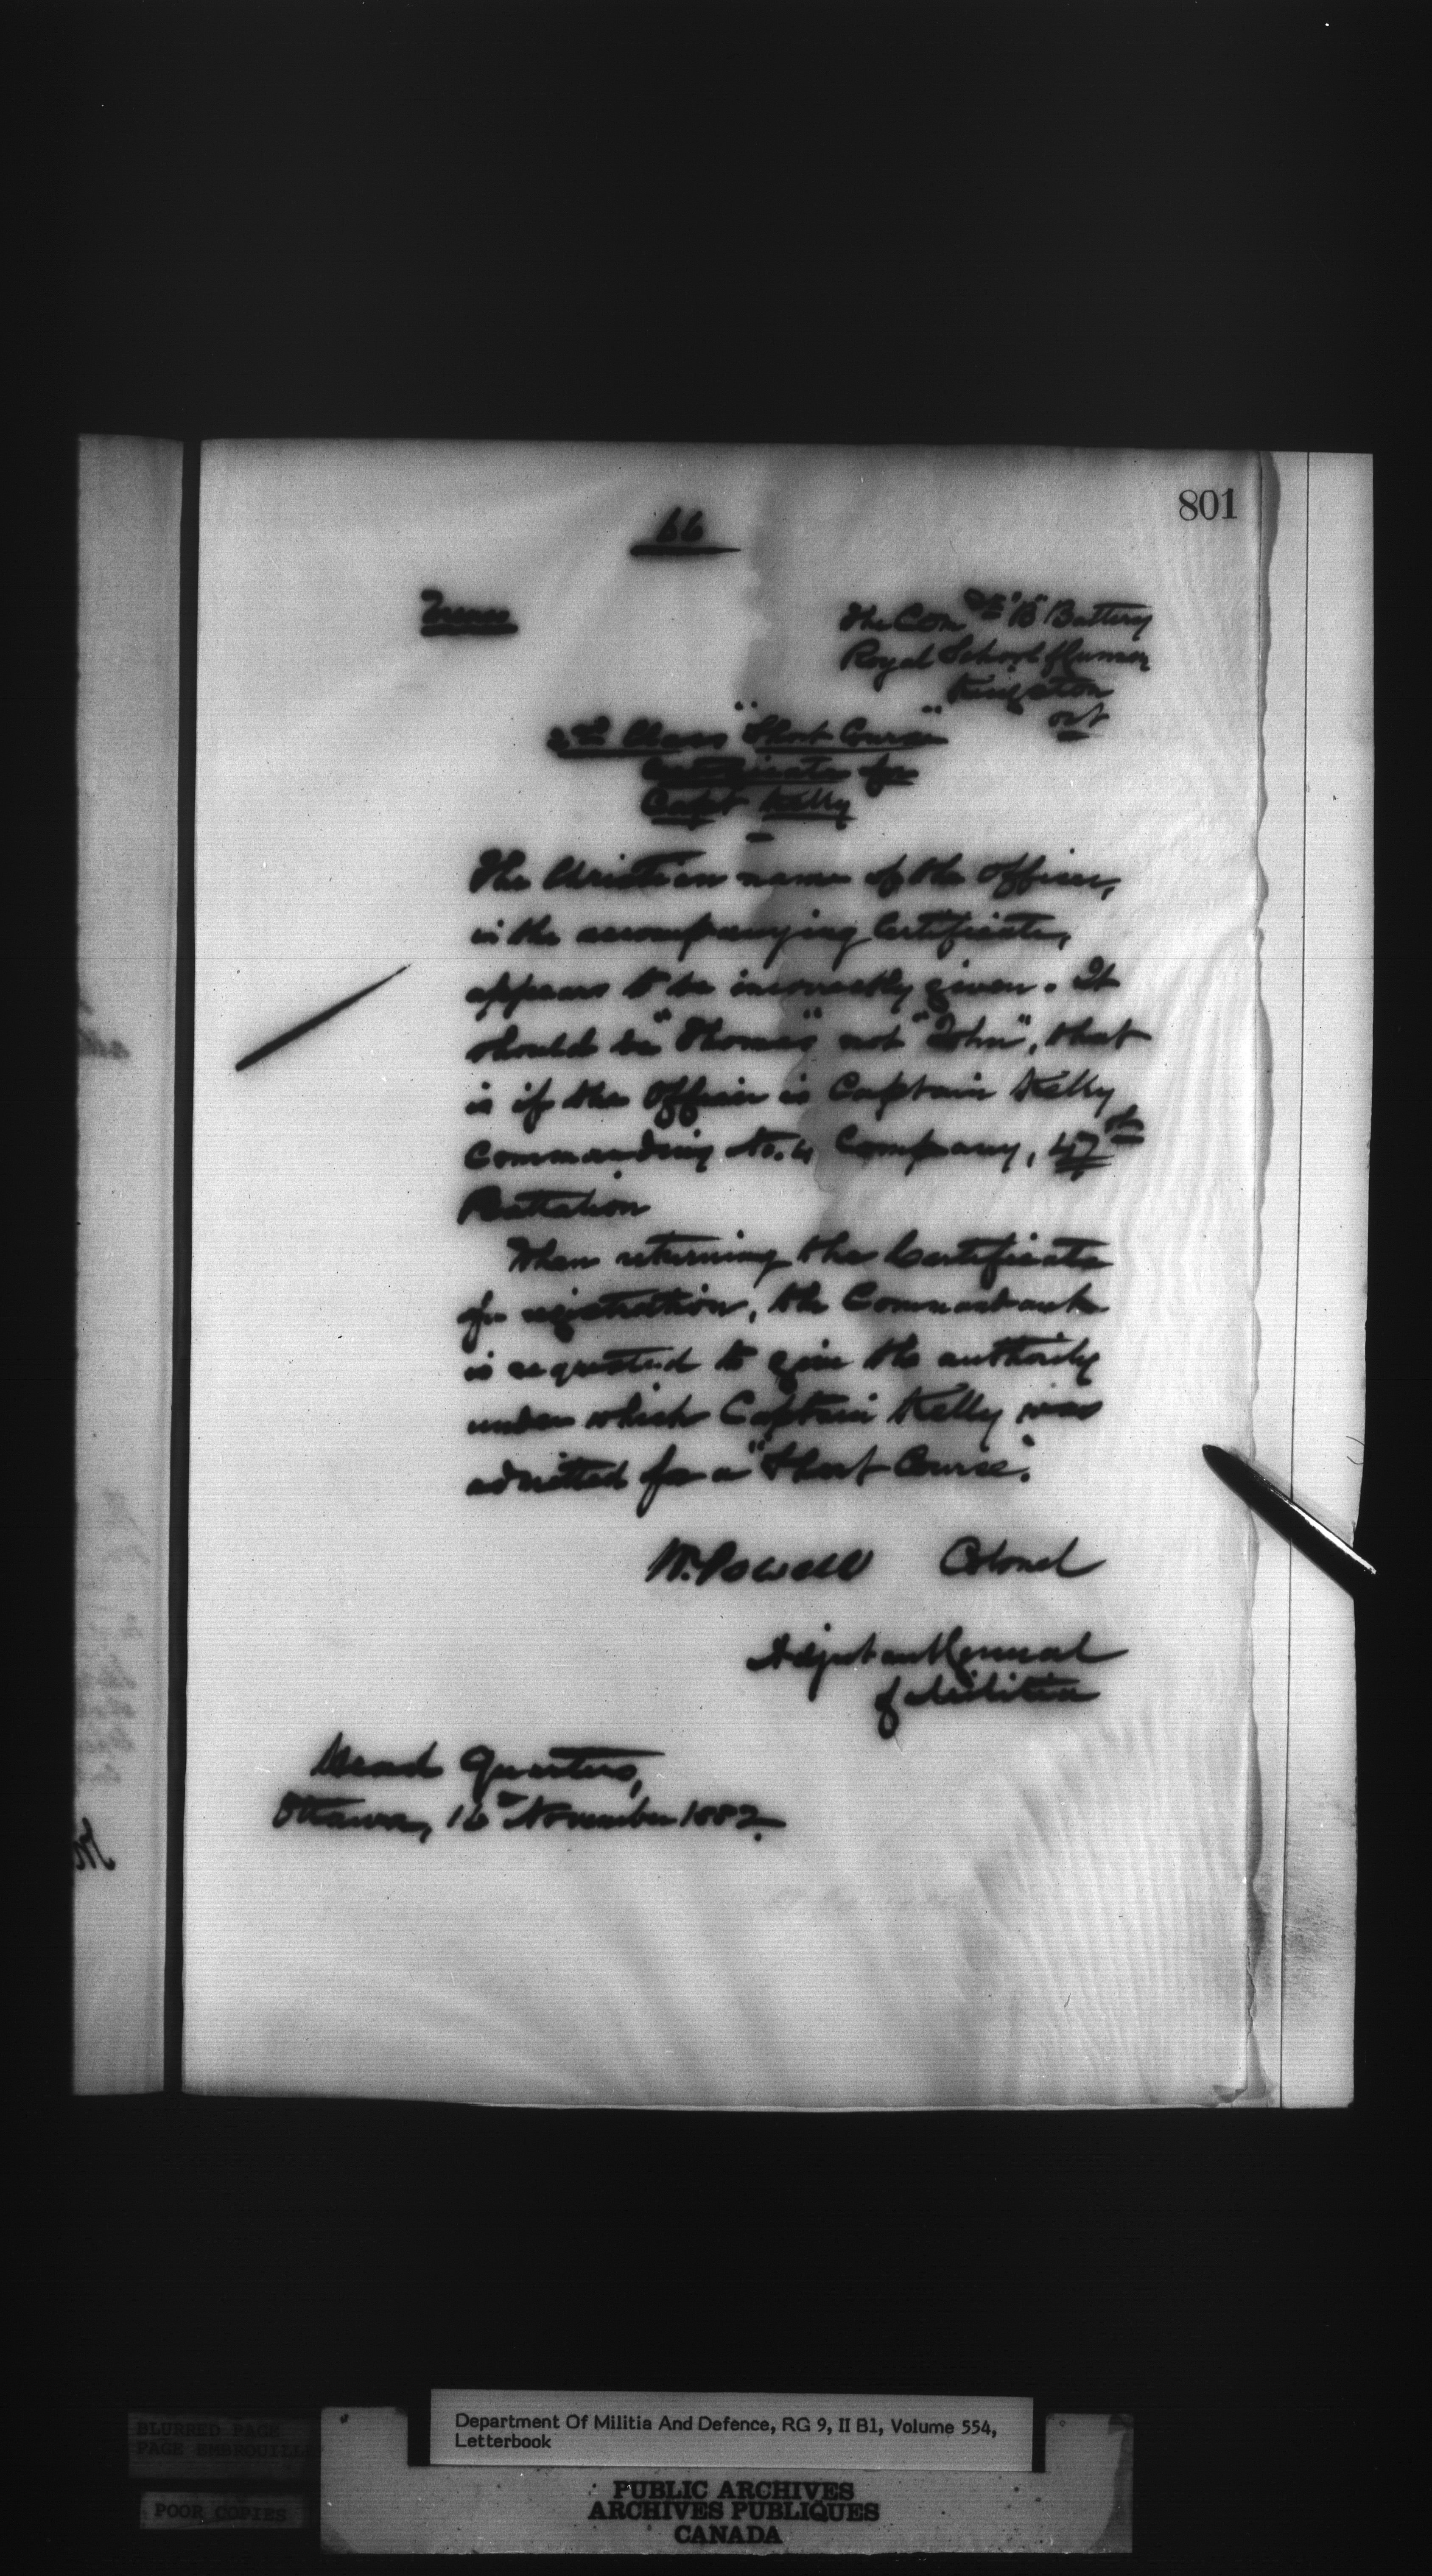 801
66
Memo
The Comdt "B" Battery
Royal School of Gunnery
Kingston
Ont
2nd Class "Short Course"
Certificate for
Capt Kelly
The Christian name of the Officer,
in the accompanying Certificate,
appears to be incorrectly given. It
should be "Thomas" not "John", that
is if the Officer is Captain Kelly
Commanding No. 4 Company, 47th
Battalion
When returning the Certificate
for registration, the Commandant
is requested to give the authority
under which Captain Kelly was
admitted for a "Short Course".
W. Powell Colonel
Adjutant General
of Militia
Head Quarters,
Ottawa, 16th November 1882.
Department Of Militia And Defence, RG 9, II B1, Volume 554,
Letterbook
BLURRED PAGE
PAGE EMBROUILL
POOR COPIES
PUBLIC ARCHIVES
ARCHIVES PUBLIQUES
CANADA